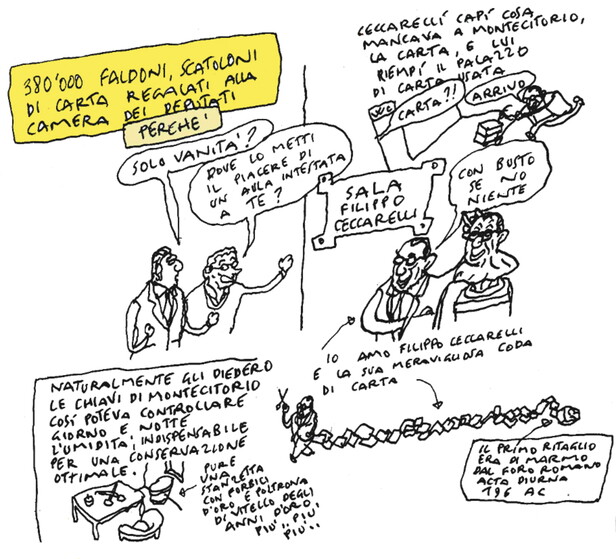 380'000 FALDONI, SCATOLONI
DI CARTA REGALATI ALLA
CAMERA DEI DEPUTATI
PERCHE'
SOLO VANITA'?
DOVE LO METTI
IL PIACERE DI
UN AULA INTESTATA
A TE?
CECCARELLI CAPÍ COSA
MANCAVA A MONTECITORIO,
LA CARTA, E LUI
RIEMPÍ IL PALAZZO
DI CARTA USATA
WC
CARTA?!
ARRIVO
SALA
FILIPPO
CECCARELLI
CON BUSTO
SE NO
NIENTE
IO AMO FILIPPO CECCARELLI
E LA SUA MERAVIGLIOSA CODA
DI CARTA
NATURALMENTE GLI DIEDERO
LE CHIAVI DI MONTECITORIO
COSÍ POTEVA CONTROLLARE
GIORNO E NOTTE
L'UMIDITA', INDISPENSABILE
PER UNA CONSERVAZIONE
OTTIMALE.
PURE
UNA
STANZETTA
CON FORBICI
D'ORO E POLTRONA
DI VITELLO DEGLI
ANNI D'ORO
PIÙ.. PIÙ
PIÙ..
IL PRIMO RITAGLIO
ERA DI MARMO
DAL FORO ROMANO
ACTA DIURNA
196 AC